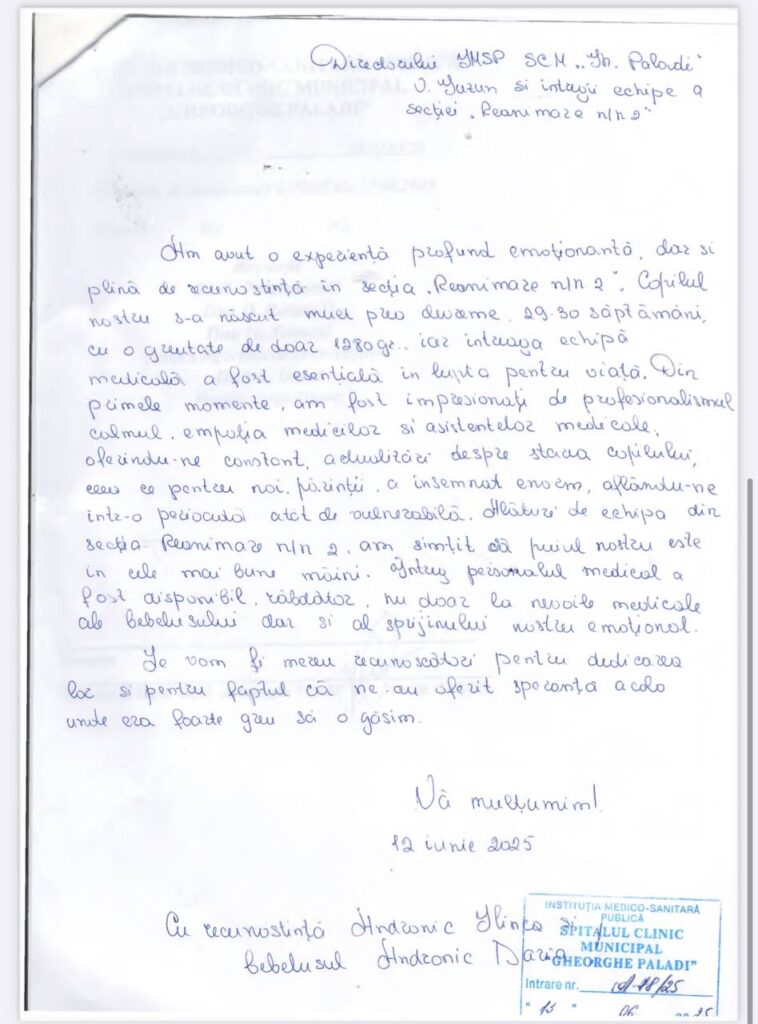 Directorului IMSP SCM „Gh. Paladi”
V. Guzun si intregii echipe a
secției „Reanimare n/n 2”
Am avut o experiență profund emoționantă, dar si
plină de recunostință în secția „Reanimare n/n 2”. Copilul
nostru s-a născut mult prea devreme, 29-30 săptămâni,
cu o greutate de doar 1280gr., iar intreaga echipă
medicală a fost esențială in lupta pentru viață. Din
primele momente, am fost impresionați de profesionalismul
calmul, empatia medicilor si asistentelor medicale,
oferindu-ne constant, actualizări despre starea copilului,
ceea ce pentru noi, părinții, a însemnat enorm, aflându-ne
intr-o perioadă atât de vulnerabilă. Alături de echipa din
secția Reanimare n/n 2, am simțit că puiul nostru este
in cele mai bune mâini. Intreg personalul medical a
fost disponibil, răbdător, nu doar la nevoile medicale
ale bebelusului dar si al sprijinului nostru emoțional.
Le vom fi mereu recunoscători pentru dedicarea
lor si pentru faptul că ne-au oferit speranță acolo
unde era foarte greu să o găsim.
Vă mulțumim!
12 iunie 2025
Cu recunostință Andronic Ilinca si
bebelusul Andronic Daria
INSTITUȚIA MEDICO-SANITARĂ
PUBLICĂ
SPITALUL CLINIC
MUNICIPAL
"GHEORGHE PALADI"
Intrare nr. A-18/25
" 13 " 06 2025